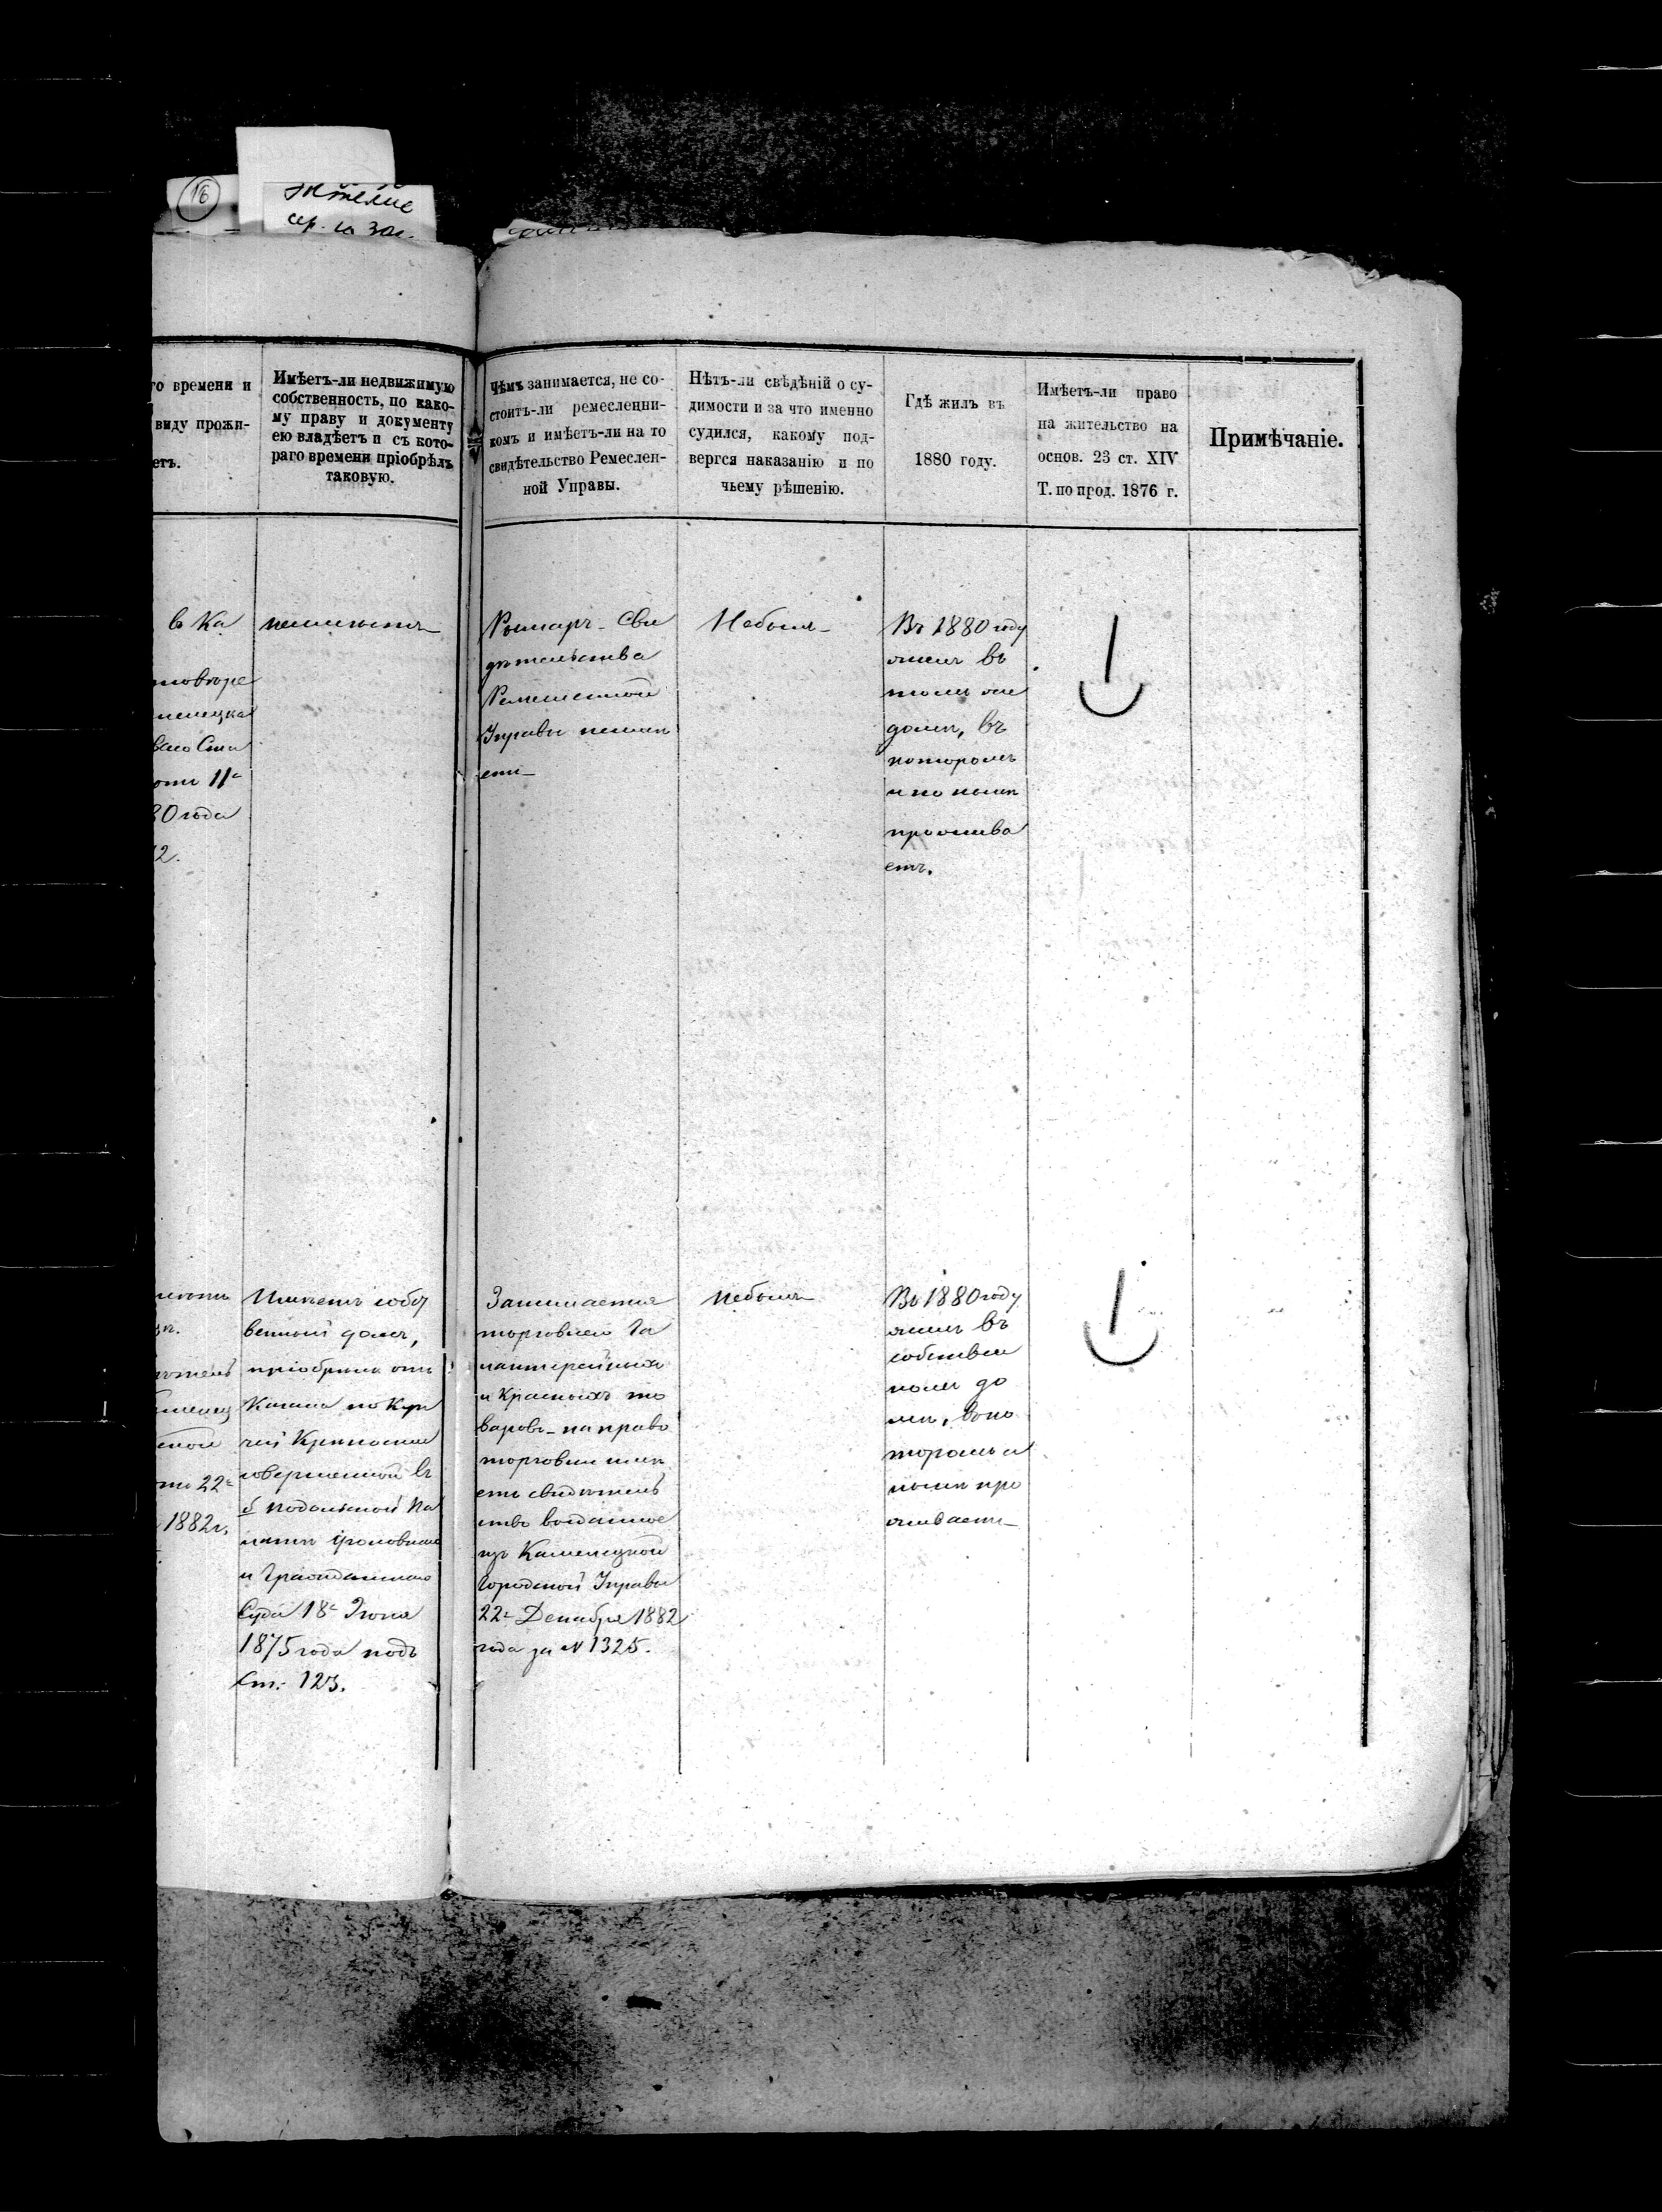 16
го времени и
виду прожи-
етъ.
Имѣетъ-ли недвижимую
собственность, по како-
му праву и документу
ею владѣетъ и съ кото-
раго времени пріобрѣлъ
таковую.
Чѣмъ занимается, не со-
стоитъ-ли ремесленни-
комъ и имѣетъ-ли на то
свидѣтельство Ремеслен-
ной Управы.
Нѣтъ-ли свѣдѣній о су-
димости и за что именно
судился, какому под-
вергся наказанію и по
чьему рѣшенію.
Гдѣ жилъ въ
1880 году.
Имѣетъ-ли право
на жительство на
основ. 23 ст. XIV
Т. по прод. 1876 г.
Примѣчаніе.
в Ка
ваго
11
80 года
2.
неимѣетъ
Римаръ - Сви
дѣтельства
Ремесленной
Управы неимѣ
етъ
Небылъ
Въ 1880 году
жилъ въ
томъ же
домѣ, въ
которомъ
и по нынѣ
прожива
етъ.
22
1882 г.
Имѣетъ собст
венный домъ,
пріобрѣлъ отъ
по Куп
чей Крѣпости
совершенной въ
Подольской Па
латѣ Уголовнаго
и Гражданскаго
Суда 18 Июня
1875 года подъ
Ст. 123.
Занимается
торговлею Га
лантерейныхъ
и Красныхъ то
варовъ - на право
торговли имѣ
етъ свидѣтель
ство выданное
изъ Каменецкой
Городской Управы
22 Декабря 1882
года за № 1325.
Небылъ
Въ 1880 году
жилъ въ
собствен
номъ до
мѣ, въ ко
торомъ и
нынѣ про
живаетъ